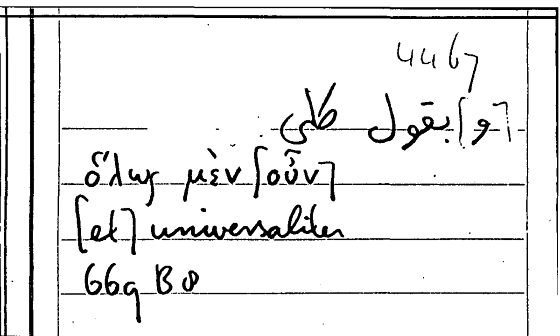 4467
[و] بقول كلى
ὅλως μὲν [οὖν]
[et] universaliter
669 B 8